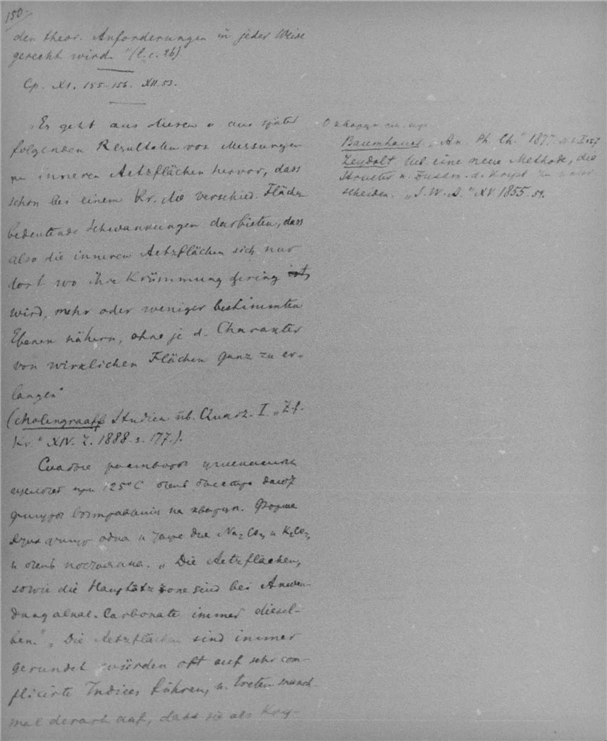 150
den theor. Anforderungen in jeder Weise
gerecht wird." (l. c. 26)
Ср. XI. 155-156. XII.53.
"Es geht aus diesen u aus später
folgenden Resultaten von Messungen
an inneren Aetzflächen hervor, dass
schon bei einem Kr. die verschied. Flächen
bedeutende Schwankungen darbieten, dass
also die inneren Aetzflächen sich nur
dort wo ihre Krümmung gering ist,
wird, mehr oder weniger bestimmten
Ebenen nähern, ohne je d. Charakter
von wirklichen Flächen ganz zu er-
langen"
(Molengraaff Studien üb. Quarz. I. "Z. f.
Kr." XIV. L. 1888. s. 177.).
Слабые растворы углекислых
щелочей при 125°C очень быстро дают
фигуры вытравления на кварце. Форма
этих фигур одна и та же для Na₂CO₃ и K₂CO₃
и очень постоянна. "Die Aetzflächen,
sowie die Hauptätzzone sind bei Anwen-
dung alkal. Carbonate immer diesel-
ben." "Die Aetzflächen sind immer
gerundet würden oft auf sehr com-
plicirte Indices führen, u. treten manch-
mal derart auf, dass sie als Kry-
О кварце см. еще
Baumhauer "An. Ph. Ch." 1877
Leydolt Ueb. eine neue Methode, die
Structur u. Zusam. d. Kryst. zu unter-
scheiden. "S. W. A." XV 1855. 59.